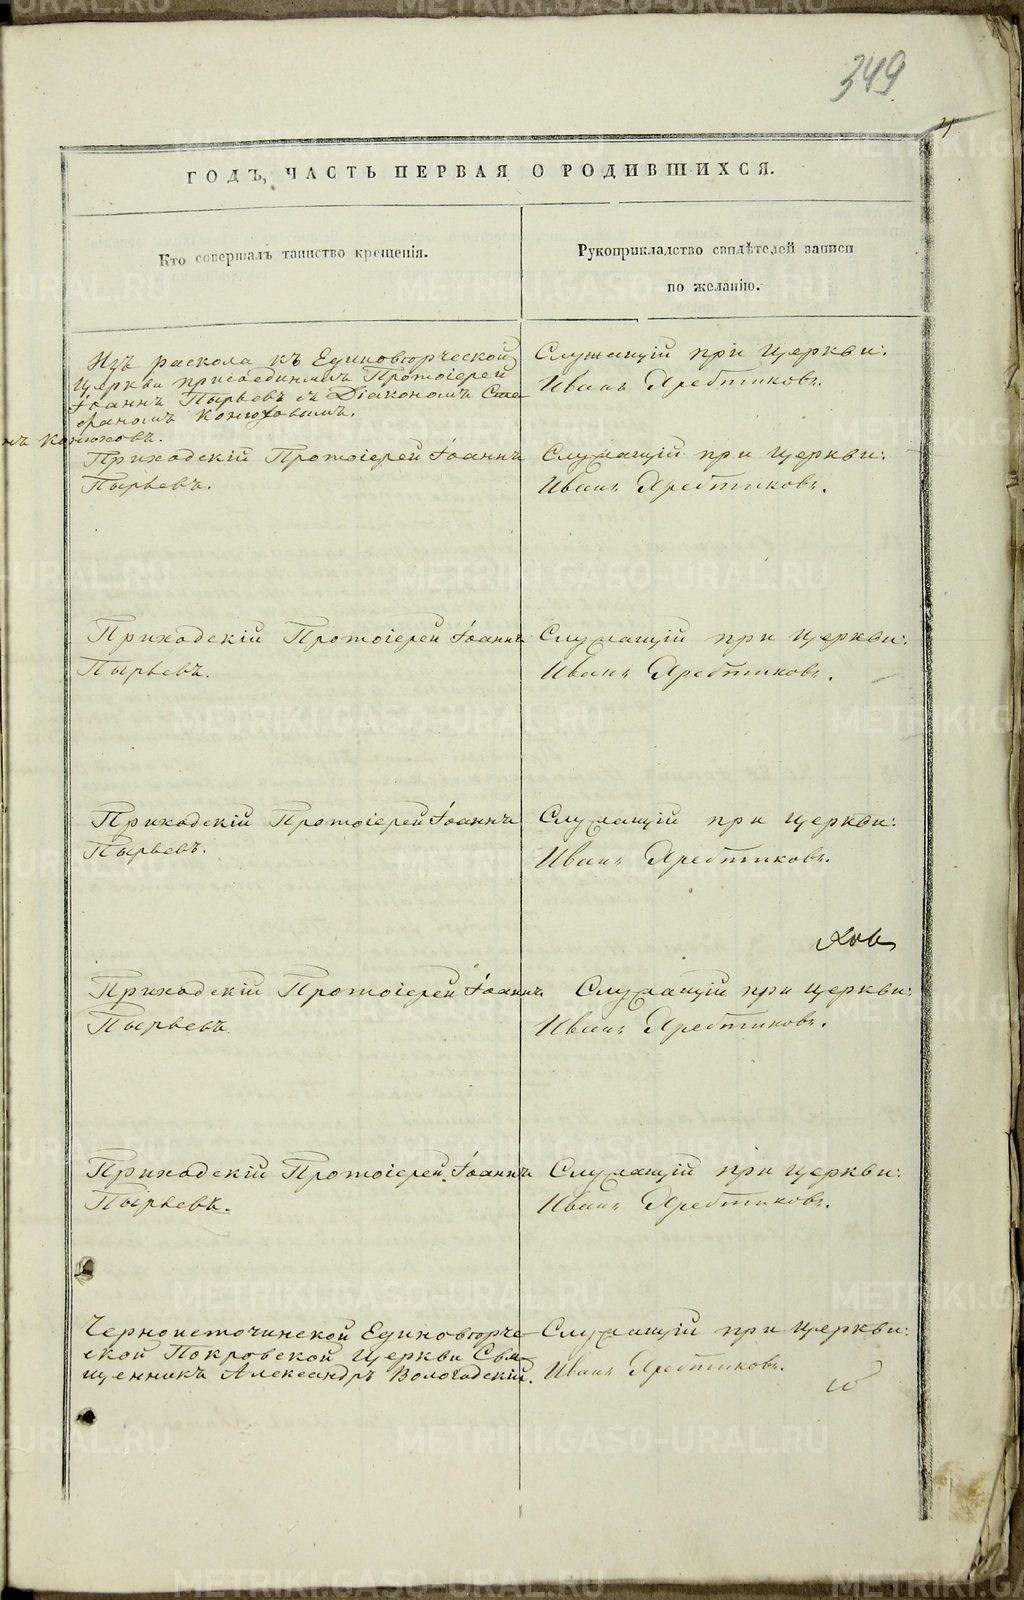 349
ГОДЪ, ЧАСТЬ ПЕРВАЯ О РОДИВШИХСЯ.
Кто совершалъ таинство крещенія.
Рукоприкладство свидѣтелей записи
по желанію.
Изъ раскола къ Единовѣрческой
Церкви присоединилъ Протоіерей
Іоаннъ Пырьевъ съ Діакономъ Сте
фаномъ Конюховымъ.
нъ Конюховъ.
Служащій при Церкви:
Иванъ Яребтиковъ.
Приходскій Протоіерей Іоаннъ
Пырьевъ.
Служащій при Церкви:
Иванъ Яребтиковъ.
Приходскій Протоіерей Іоаннъ
Пырьевъ.
Служащій при Церкви:
Иванъ Яребтиковъ.
Приходскій Протоіерей Іоаннъ
Пырьевъ.
Служащій при Церкви:
Иванъ Яребтиковъ.
Приходскій Протоіерей Іоаннъ
Пырьевъ
Служащій при Церкви:
Иванъ Яребтиковъ.
Приходскій Протоіерей Іоаннъ
Пырьевъ.
Служащій при Церкви:
Иванъ Яребтиковъ.
Черноисточинской Единовѣрче-
ской Покровской Церкви Свя-
щенникъ Александръ Вологодскій.
Служащій при Церкви:
Иванъ Яребтиковъ.
METRIKI.GASO-URAL.RU